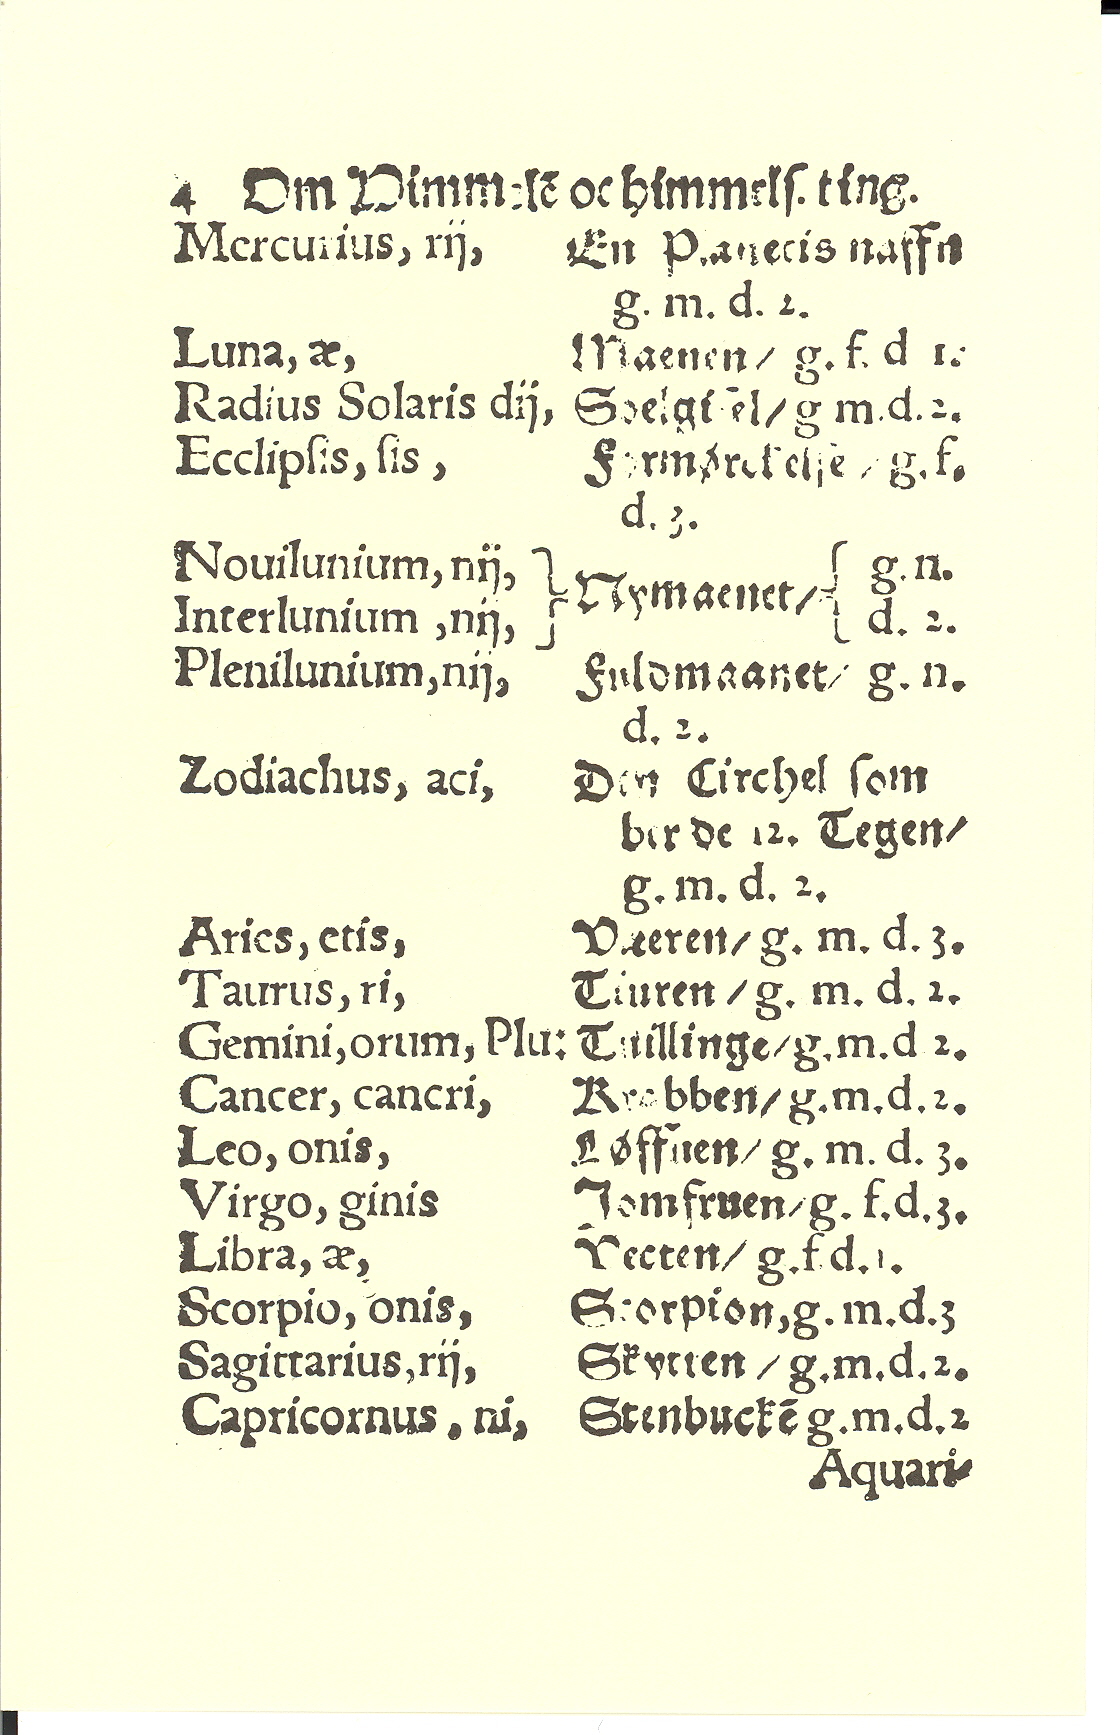 4 Om Himmelē oc himmels. ting.
Mercurius, rij, En Planetis naffn
g. m. d. 2.
Luna, æ, Maenen/ g. f. d 1.
Radius Solaris dij, g m. d. 2.
Ecclipſis, ſis, Formørckelſē / g. f.
d. 3.
Nouilunium, nij, g. n.
Nymaenet/
Interlunium ,nij, d. 2.
Plenilunium, nij, Fuldmaanet/ g. n.
d. 2.
Zodiachus, aci, Den Circhel ſom
ber de 12. Tegen/
g. m. d. 2.
Aries, etis, Væeren/ g. m. d. 3.
Taurus, ri, Tiuren / g. m. d. 2.
Gemini, orum, Plu: Tuillinge/ g. m. d 2.
Cancer, cancri, Krabben/ g. m. d. 2.
Leo, onis, Løffuen/ g. m. d. 3.
Virgo, ginis Jomfruen/ g. f. d. 3.
Libra, æ, Vecten/ g. f d. 1.
Scorpio, onis, Scorpion, g. m. d. 3
Sagittarius, rij, Skytten / g. m. d. 2.
Capricornus, ni, Stenbuckē g. m. d. 2
Aquari-